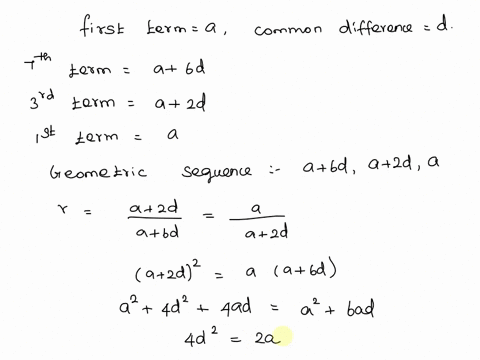 first term = a, common difference = d.
7th term = a + 6d
3rd term = a + 2d
1st term = a
Geometric sequence :- a+6d, a+2d, a
r = (a+2d)/(a+6d) = a/(a+2d)
(a+2d)² = a (a+6d)
a² + 4d² + 4ad = a² + 6ad
4d² = 2a